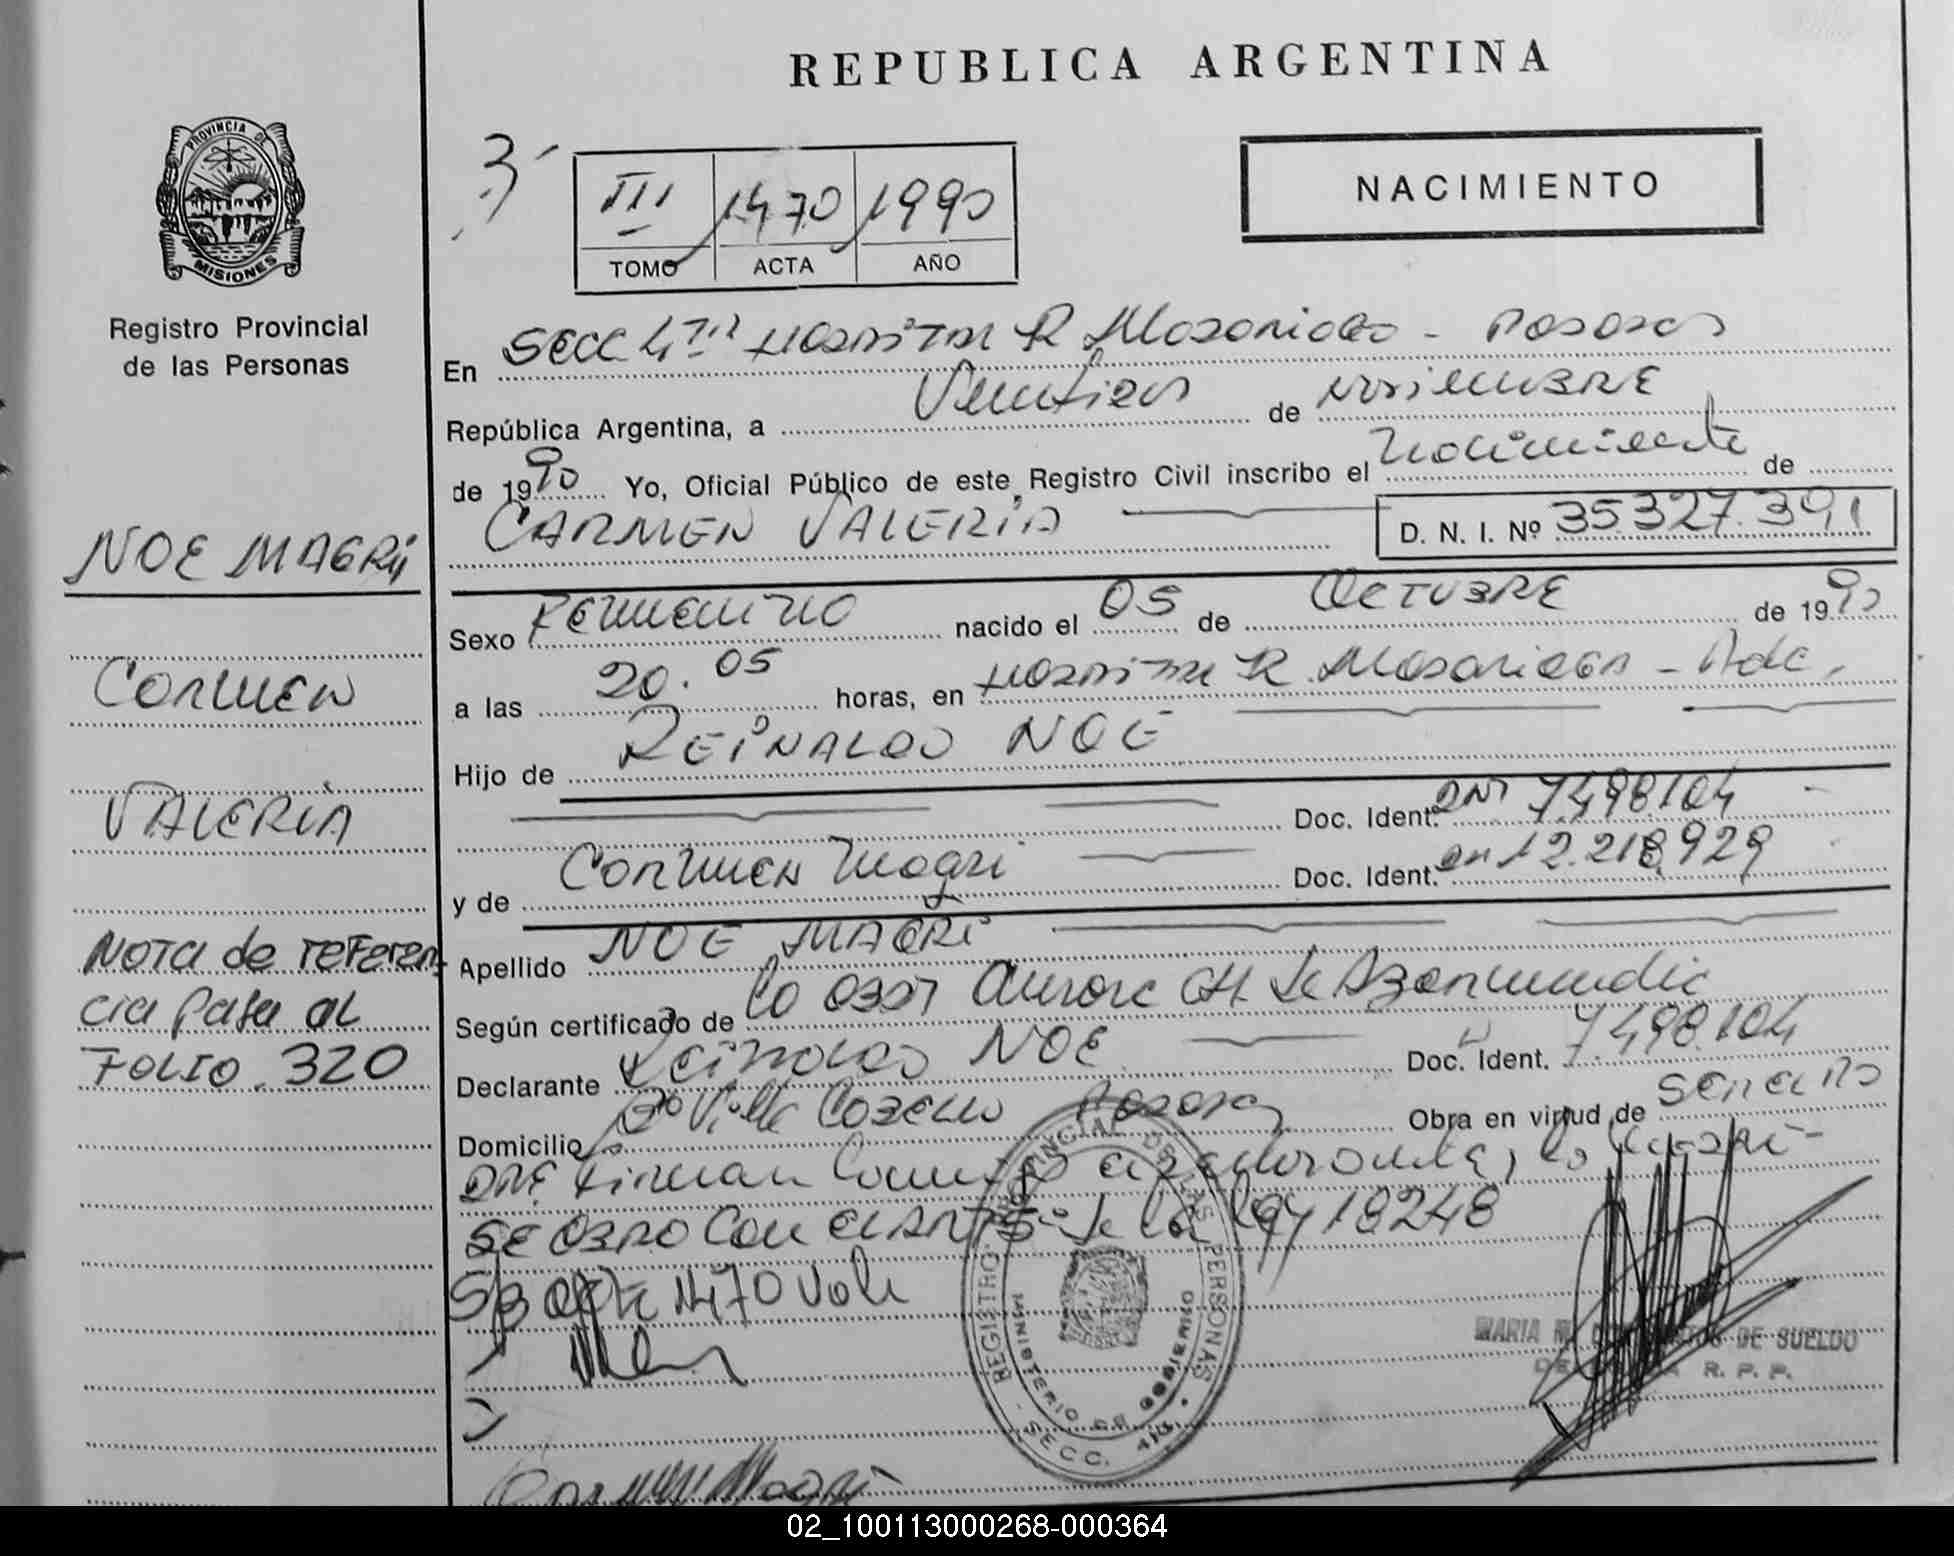 REPUBLICA ARGENTINA
PROVINCIA DE
MISIONES
Registro Provincial
de las Personas
3
III 1470 1990
TOMO ACTA AÑO
NACIMIENTO
En SECC 4ta Hospital R Madariaga - Posadas
República Argentina, a de noviembre
de 1990 Yo, Oficial Público de este Registro Civil inscribo el nacimiento de
CARMEN VALERIA D. N. I. Nº 35.327.391
Sexo Femenino nacido el 05 de OCTUBRE de 1990
a las 20.05 horas, en Hospital R. Madariaga - Pdas.
Hijo de REINALDO NOE
Doc. Ident. DNI 7.498.104
y de Carmen Magri Doc. Ident. 12.218.929
Apellido NOE MAGRI
Según certificado de la obst Aurora de
Declarante Reinaldo NOE Doc. Ident. 7.498.104
Domicilio Bº Villa Posadas Obra en virtud de
firman
SE OBRO con el de la Ley 18248
S/B 1470 Vale
REGISTRO PROVINCIAL DE LAS PERSONAS
MINISTERIO DE GOBIERNO
SECC. 4ta
MARIA DE SUELDO
R. P. P.
Carmen Magri
NOE MAGRI
Carmen
VALERIA
Nota de referen
cia pasa al
Folio 320
02_100113000268-000364